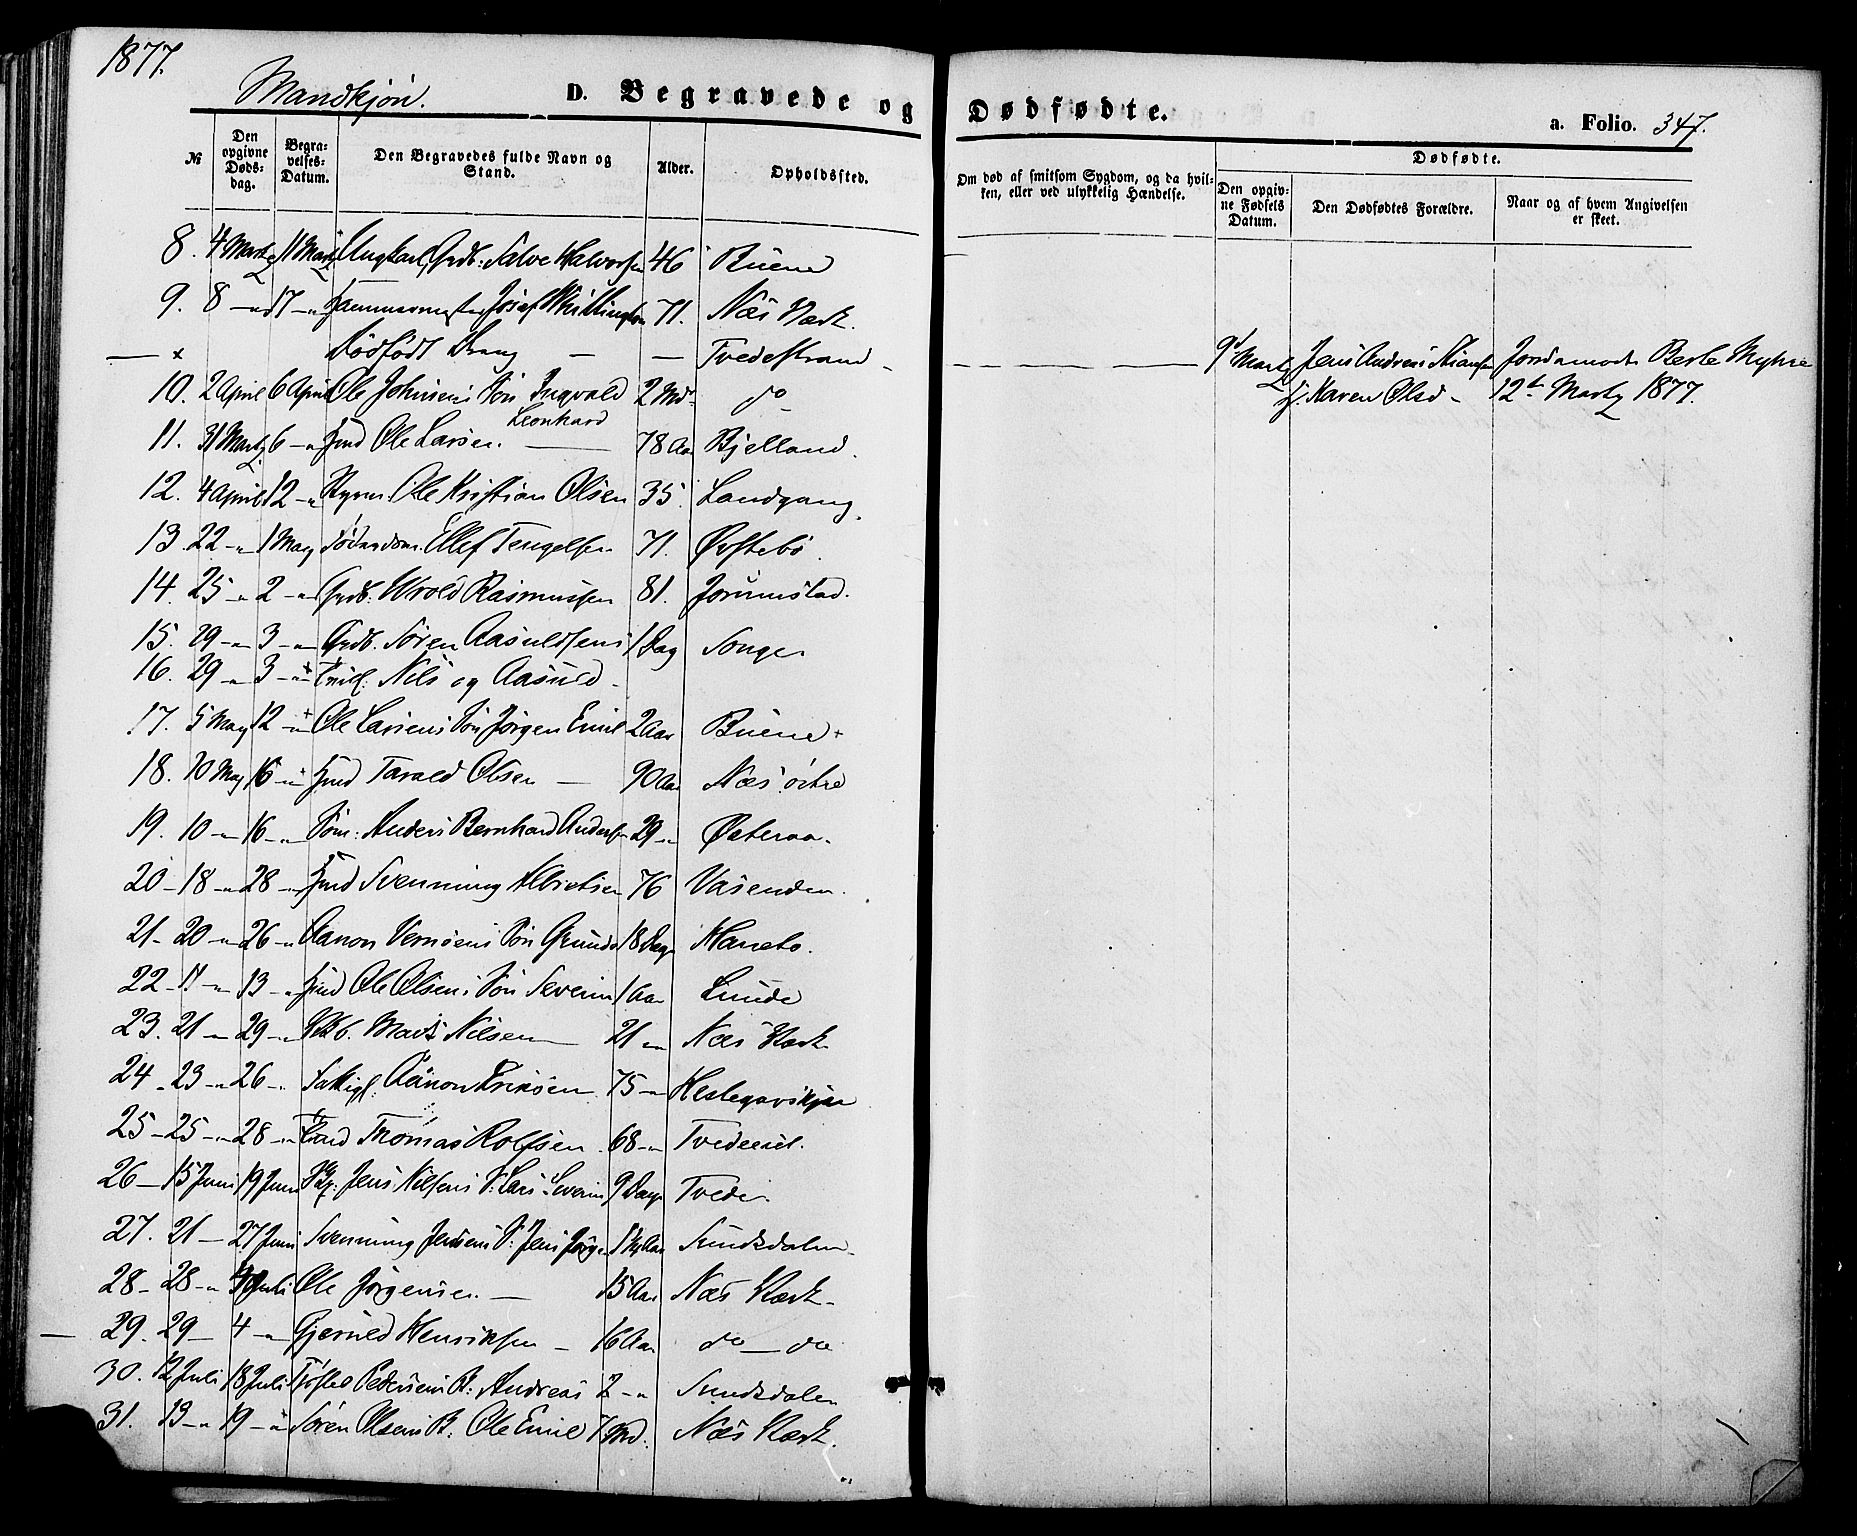 1877.
Mandkjøn.
D. Begravede og Dødfødte.
a. Folio. 347.
№
Den opgivne Døds-dag.
Begra-velses-Datum.
Den Begravedes fulde Navn og Stand.
Alder.
Opholdssted.
Om død af smitsom Sygdom, og da hvil-ken, eller ved ulykkelig Hændelse.
Dødfødte.
Den opgiv-ne Fødsels Datum.
Den Dødfødtes Forældre.
Naar og af hvem Angivelsen er skeet.
8. 4 Martz 11 Martz Ungkarl, Grdb: Salve Halvorsen 46 Buene
9. 8 - 17 - Hammersmester Josef 71. Næs Værk.
x Dødfødt Dreng — — Tvedestrand - 9 Martz Jens Andreas Jordemoder Myhre
10. 2 April 6 April Ole Johnsens Søn Ingvald Leonhard 2 Md. do Karen Olsd - 12te Martz 1877.
11. 31 Martz 6 - Hmd Ole Larsen. 78 Aar Bjelland.
12. 4 April 12 - Styrm. Ole Kristian Olsen 35. Landgang.
13. 22 - 1 May Ellef Tengelsen 71. Østebø.
14. 25 - 2 - Grdb. Wrold Rasmussen 81. Jorumstad.
15. 29 - 3 - Grdb. Søren Aasuldsens 1 Dag Songe
16. 29 - 3 - Tvil: Nils og Aasuld -
17. 5 May 12 - Ole Larsens Søn Jørgen Emil 2 Aar Buene +
18. 10 May 16 - Hmd Tarald Olsen — 90 Aar Næs østre
19. 10 - 16 - Søm: Anders Bernhard Andersen 29 - Østeraa.
20 - 18 - 28 - Hmd Svenning Albretsen 76 Vasenden.
21 - 20 - 26 - Aanon Søn 18 Dage
22 - 11 - 13 - Hmd Ole Olsens Søn Severin 1 Aar Lunde
23. 21 - 29 - Mads Nilsen 21 - Næs Værk
24 - 23 - 26 - Aanon 75 -
25 - 25 - 28 - Thomas Rolfsen 68 -
26 - 15 Juni 19 Juni Jens Nilsens S: Lars Severin 9 Dage Tvede.
27. 21 - 27 Juni Svenning Jensens S: Jens Jørgen Sundsdalen -
28 - 28 - 4 Juli Ole Jørgensen — 15 Aar Næs Værk -
29. 29 - 4 - Gjeruld Henriksen - 16 Aar do — do
30. 12 Juli 18 Juli Pedersens B: Andreas 2 - Sundsdalen
31. 13 - 19 - Søren Olsens B: Ole Emil 7 Md: Næs Værk.